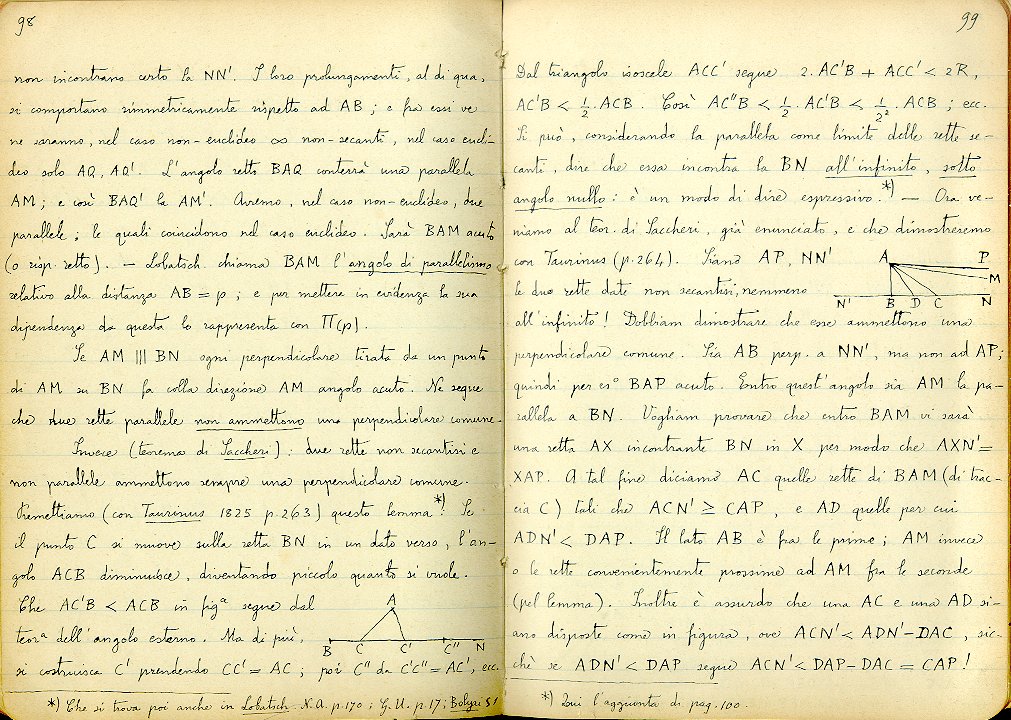 98
non incontrano certo la NN'. I loro prolungamenti, al di qua,
si comportano simmetricamente rispetto ad AB; e fra essi ve
ne saranno, nel caso non-euclideo ∞ non-secanti, nel caso eucli-
deo solo AQ, AQ'. L'angolo retto BAQ conterrà una parallela
AM; e così BAQ' la AM'. Avremo, nel caso non-euclideo, due
parallele; le quali coincidono nel caso euclideo. Sarà BAM acuto
(o risp. retto). — Lobatsch. chiama BAM l'angolo di parallelismo
relativo alla distanza AB = p; e per mettere in evidenza la sua
dipendenza da questa lo rappresenta con Π(p).
Se AM ||| BN ogni perpendicolare tirata da un punto
di AM su BN fa colla direzione AM angolo acuto. Ne segue
che due rette parallele non ammettono una perpendicolare comune.
Invece (teorema di Saccheri): due rette non secantisi e
non parallele ammettono sempre una perpendicolare comune.
Premettiamo (con Taurinus 1825 p.263) questo lemma*): Se
il punto C si muove sulla retta BN in un dato verso, l'an-
golo ACB diminuisce, diventando piccolo quanto si vuole.
Che AC'B < ACB in figª segue dal
teorª dell'angolo esterno. Ma di più,
si costruisca C' prendendo CC' = AC; poi C" da C'C" = AC', ecc.
A
B C C' C" N
*) Che si trova poi anche in Lobatsch. N.A. p.170; G.U. p.17; Bolyai §1
99
Dal triangolo isoscele ACC' segue 2.AC'B + ACC' < 2R,
AC'B < 1/2.ACB. Così AC"B < 1/2.AC'B < 1/2².ACB; ecc.
Si può, considerando la parallela come limite delle rette se-
canti, dire che essa incontra la BN all'infinito, sotto
angolo nullo: è un modo di dire espressivo.*) — Ora ve-
niamo al teor. di Saccheri, già enunciato, e che dimostreremo
con Taurinus (p.264). Siano AP, NN'
le due rette date non secantisi, nemmeno
A P M
N' B D C N
all'infinito! Dobbiam dimostrare che esse ammettono una
perpendicolare comune. Sia AB perp. a NN', ma non ad AP;
quindi per esº BAP acuto. Entro quest'angolo sia AM la pa-
rallela a BN. Vogliam provare che entro BAM vi sarà
una retta AX incontrante BN in X per modo che AXN' =
XAP. A tal fine diciamo AC quelle rette di BAM (di trac-
cia C) tali che ACN' ≥ CAP, e AD quelle per cui
ADN' < DAP. Il lato AB è fra le prime; AM invece
o le rette convenientemente prossime ad AM fra le seconde
(pel lemma). Inoltre è assurdo che una AC e una AD si-
ano disposte come in figura, ove ACN' < ADN'-DAC, sic-
chè se ADN' < DAP segue ACN' < DAP-DAC = CAP!
*) Qui l'aggiunta di pag. 100.